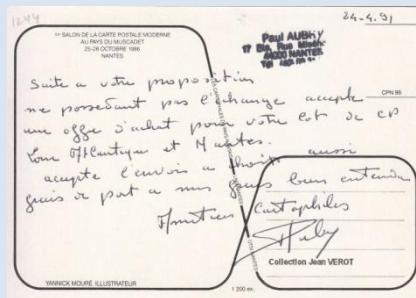 1244
24-4.91
1er SALON DE LA CARTE POSTALE MODERNE
AU PAYS DU MUSCADET
25-26 OCTOBRE 1986
NANTES
Paul AUBRY
17 Bis, Rue
44000 NANTES
CPN 98
Suite a votre proposition
ne possedant pas l'échange accepte
une offre d'achat pour votre lot de CP
Loire Atlantique et Nantes.
accepte l'envois a choix aussi
frais de port a mes frais bien entendu
Amities Cartophiles
Collection Jean VEROT
YANNICK MOURÉ, ILLUSTRATEUR
1 200 ex.